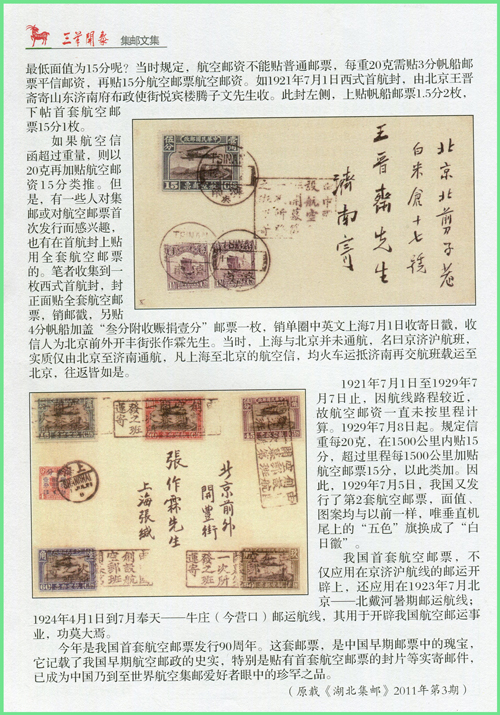 三羊開泰 集邮文集
最低面值为15分呢？当时规定，航空邮资不能贴普通邮票，每重20克需贴3分帆船邮
票平信邮资，再贴15分航空邮票航空邮资。如1921年7月1日西式首航封，由北京王晋
斋寄山东济南府布政使街悦宾楼腾子文先生收。此封左侧，上贴帆船邮票1.5分2枚，
下帖首套航空邮
票15分1枚。
如果航空信
函超过重量，则以
20克再加贴航空邮
资15分类推。但
是，有一些人对集
邮或对航空邮票首
次发行而感兴趣，
也有在首航封上贴
用全套航空邮票
的。笔者收集到一
枚西式首航封，封
正面贴全套航空邮
票，销邮戳，另贴
4分帆船加盖“叁分附收赈捐壹分”邮票一枚，销单圈中英文上海7月1日收寄日戳，收
信人为北京前外开丰街张作霖先生。当时，上海与北京并未通航，名曰京济沪航班，
实质仅由北京至济南通航，凡上海至北京的航空信，均火车运抵济南再交航班载运至
北京，往返皆如是。
北京北剪子巷
白米倉十七號
王晋齋先生
濟南寄
15
TSINAN
1921年7月1日至1929年7
月7日止，因航线路程较近，
故航空邮资一直未按里程计
算。1929年7月8日起。规定信
重每20克，在1500公里内贴15
分，超过里程每1500公里加贴
航空邮票15分，以此类加。因
此，1929年7月5日，我国又发
行了第2套航空邮票，面值、
图案均与以前一样，唯垂直机
尾上的“五色”旗换成了“白
日徽”。
北京前外
開豐街
張作霖先生
上海張緘
上海
我国首套航空邮票，不
仅应用在京济沪航线的邮运开
辟上，还应用在1923年7月北
京——北戴河暑期邮运航线；
1924年4月1日到7月奉天——牛庄（今营口）邮运航线，其用于开辟我国航空邮运事
业，功莫大焉。
今年是我国首套航空邮票发行90周年。这套邮票，是中国早期邮票中的瑰宝，
它记载了我国早期航空邮政的史实，特别是贴有首套航空邮票的封片等实寄邮件，
已成为中国乃到至世界航空集邮爱好者眼中的珍罕之品。
（原载《湖北集邮》2011年第3期）